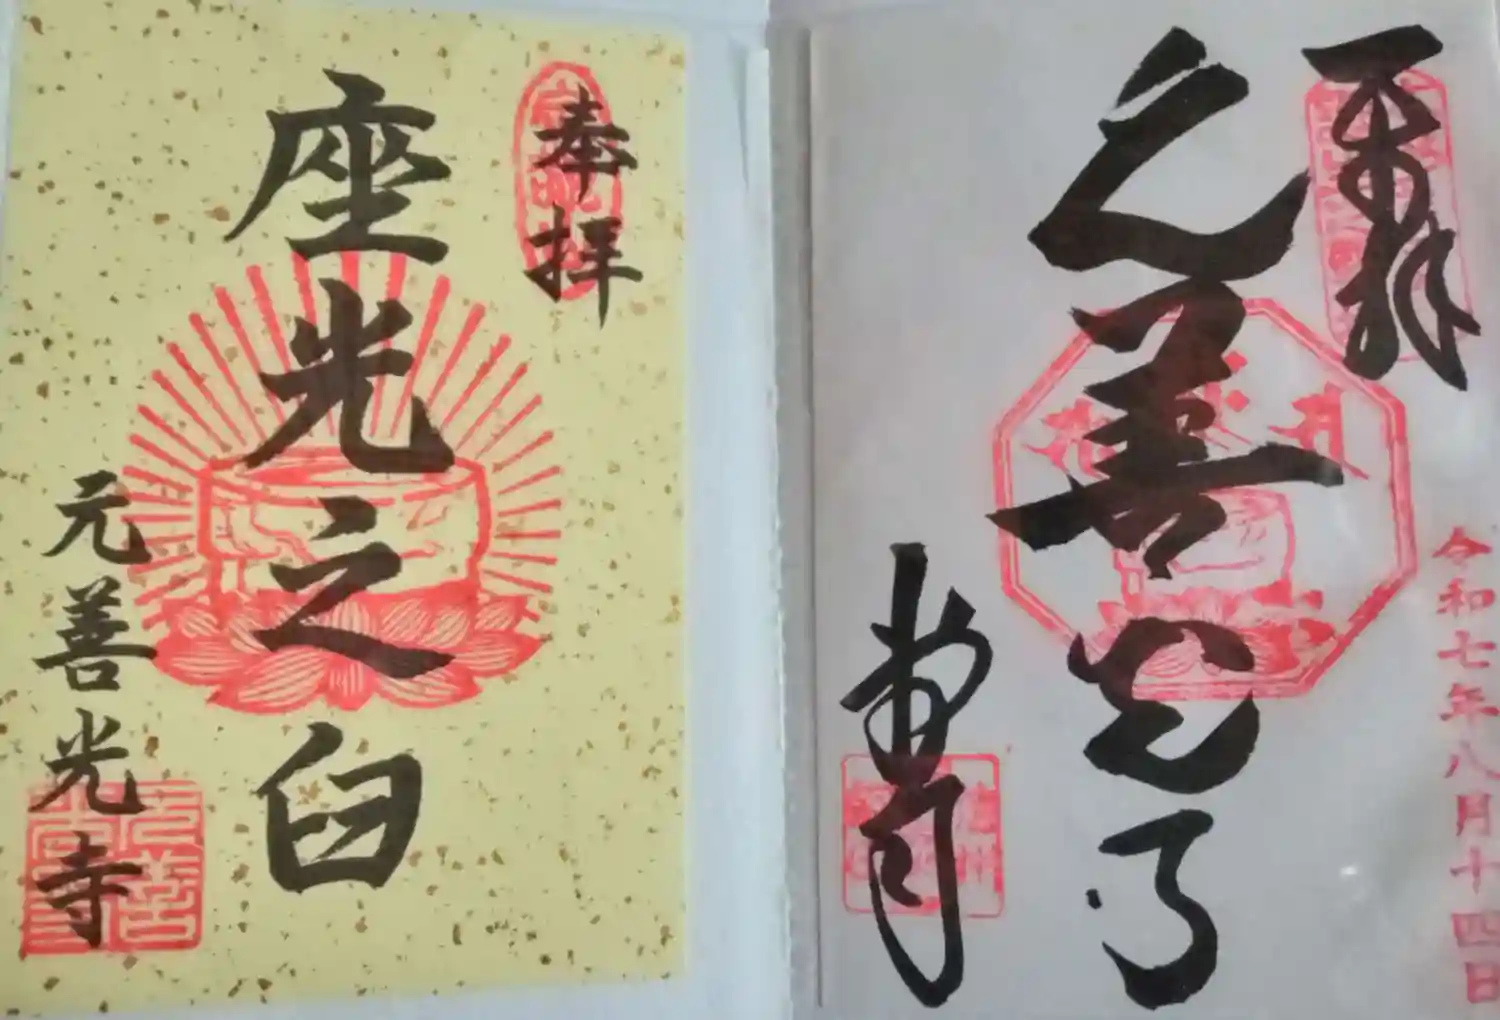 奉拝
令和七年八月十四日
元善光寺
奉拝
座光之臼
元善光寺